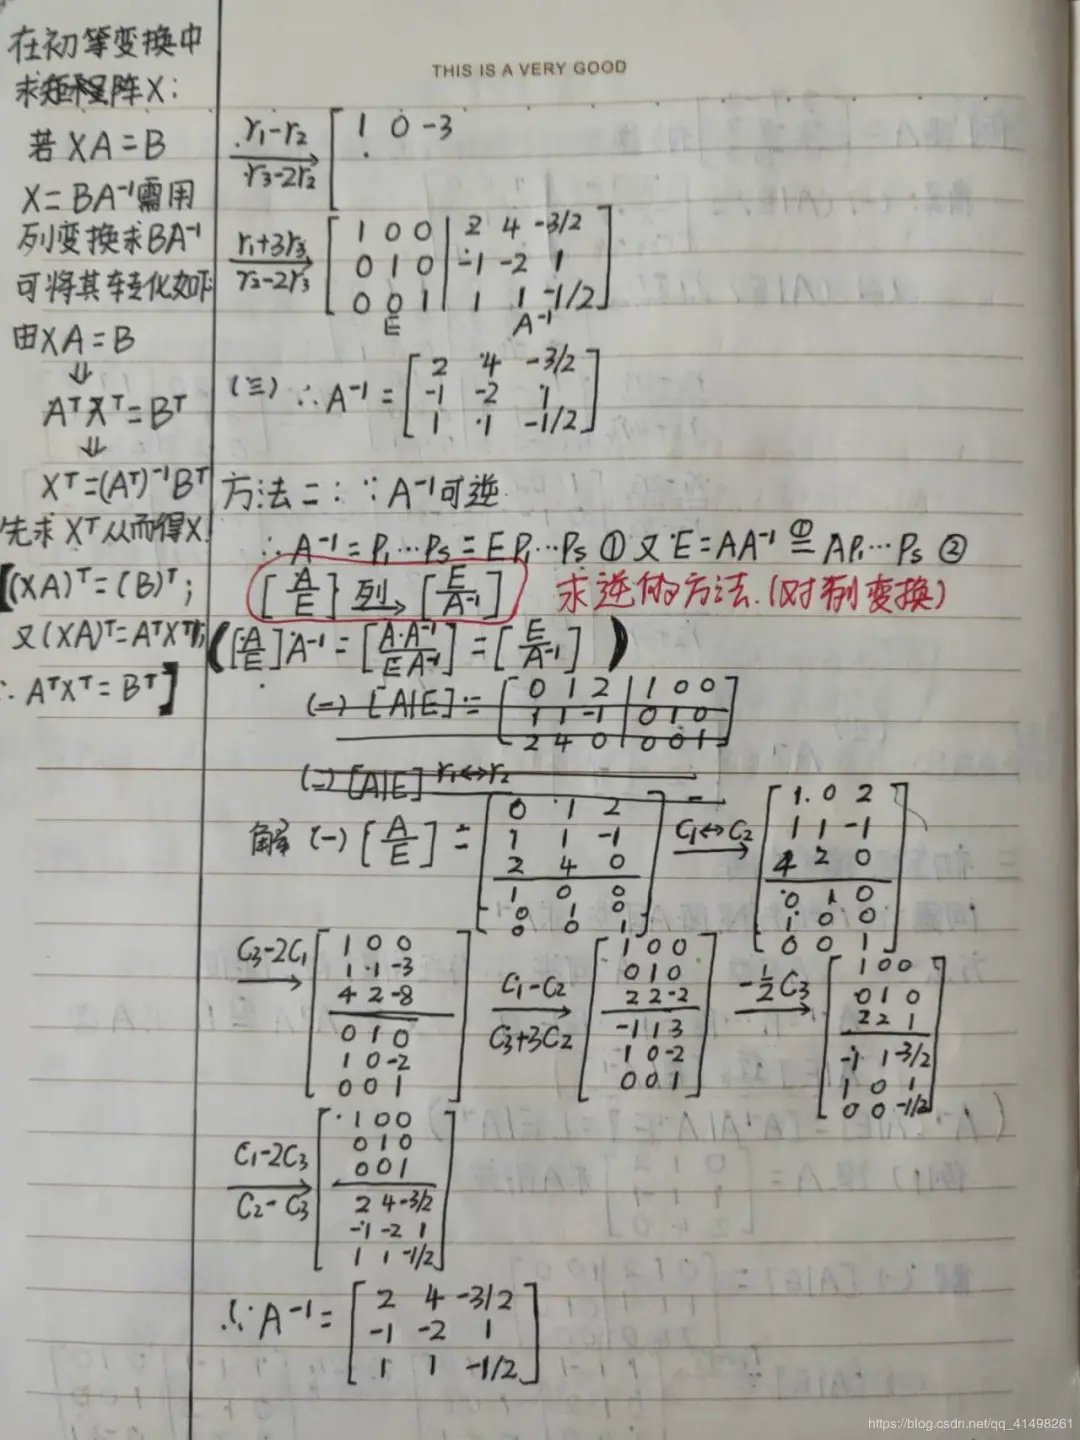 THIS IS A VERY GOOD
在初等变换中
求矩阵X：
若 XA=B
X=BA⁻¹需用
列变换求BA⁻¹
可将其转化如下
由XA=B
⇓
AᵀXᵀ=Bᵀ
⇓
Xᵀ=(Aᵀ)⁻¹Bᵀ
先求Xᵀ从而得X!
[(XA)ᵀ=(B)ᵀ;
又(XA)ᵀ=AᵀXᵀ;
∴AᵀXᵀ=Bᵀ]
r₁-r₂
r₃-2r₂
1 0 -3
r₁+3r₃
r₂-2r₃
1 0 0 | 2 4 -3/2
0 1 0 | -1 -2 1
0 0 1 | 1 1 -1/2
E A⁻¹
(三) ∴A⁻¹=
2 4 -3/2
-1 -2 1
1 1 -1/2
方法二：∵A⁻¹可逆
∴A⁻¹=P₁…Ps=EP₁…Ps ① 又E=AA⁻¹ ①= AP₁…Ps ②
[A/E] 列→ [E/A⁻¹] 求逆的方法.(对列变换)
([A/E]A⁻¹=[A·A⁻¹/EA⁻¹]=[E/A⁻¹])
(一) [A|E]=
0 1 2 | 1 0 0
1 1 -1 | 0 1 0
2 4 0 | 0 0 1
(二) [A|E] r₁↔r₂
解 (一) [A/E]=
0 1 2
1 1 -1
2 4 0
1 0 0
0 1 0
0 0 1
C₁↔C₂
1 0 2
1 1 -1
4 2 0
0 1 0
1 0 0
0 0 1
C₃-2C₁
1 0 0
1 1 -3
4 2 -8
0 1 0
1 0 -2
0 0 1
C₁-C₂
C₃+3C₂
1 0 0
0 1 0
2 2 -2
-1 1 3
1 0 -2
0 0 1
-1/2 C₃
1 0 0
0 1 0
2 2 1
-1 1 -3/2
1 0 1
0 0 -1/2
C₁-2C₃
C₂-C₃
1 0 0
0 1 0
0 0 1
2 4 -3/2
-1 -2 1
1 1 -1/2
∴A⁻¹=
2 4 -3/2
-1 -2 1
1 1 -1/2
https://blog.csdn.net/qq_41498261